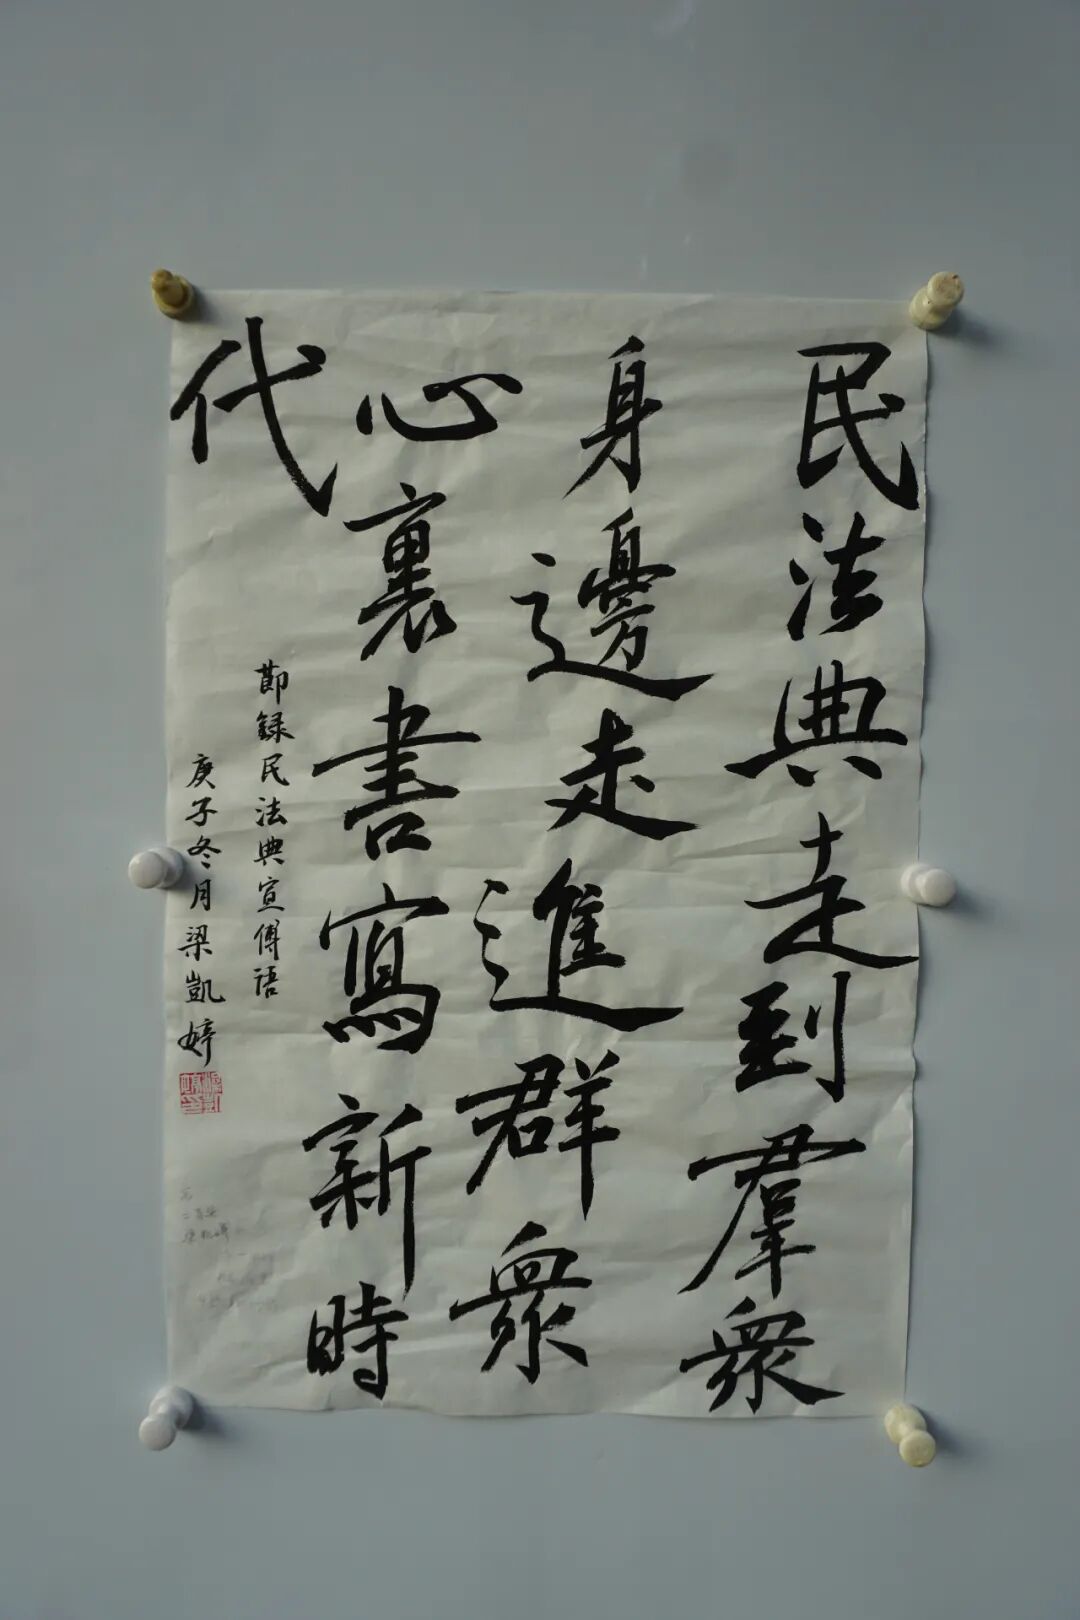 民法典走到羣衆
身邊走進群衆
心裏書寫新時
代
節録民法典宣傳语
庚子冬月梁凱婷